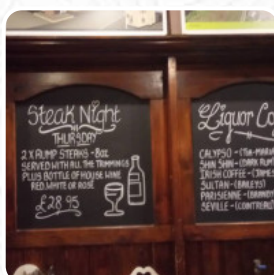 Steak Night
THURSDAY
2 X RUMP STEAKS - 8oz
SERVED WITH ALL THE TRIMMINGS
PLUS BOTTLE OF HOUSE WINE
RED, WHITE OR ROSÉ
£28.95
Liquor Co
CALYPSO - (TIA-MARIA
SHIN SHIN - (DARK RUM
IRISH COFFEE - (JAMES
SULTAN - (BAILEYS)
PARISIENNE - (BRANDY
SEVILLE - (COINTREAU)